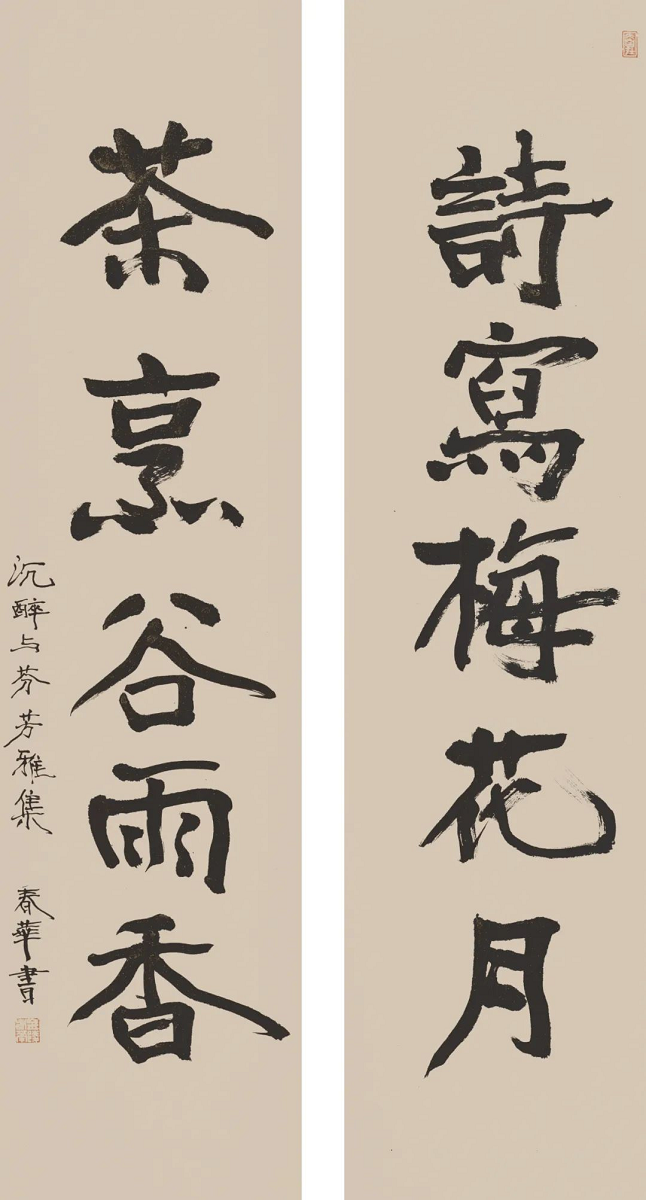 詩寫梅花月
茶烹谷雨香
沉醉与芬芳雅集
春華書